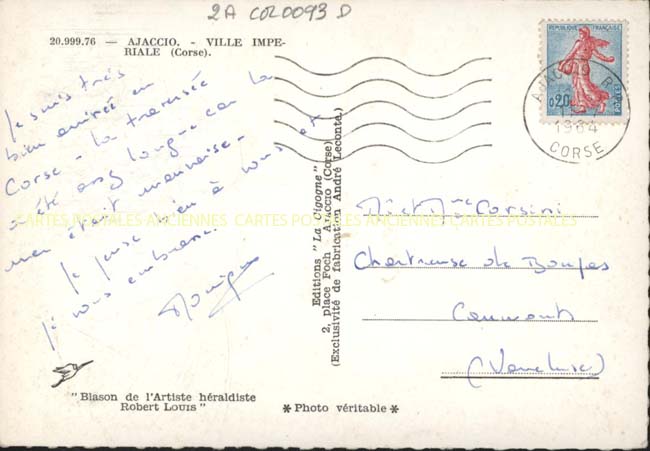 2A COL0093 D
20.999.76 — AJACCIO. - VILLE IMPE-
RIALE (Corse).
Je suis très
bien arrivée en
Corse - la traversée
a été assez longue car la
mer était mauvaise -
Je pense bien à vous et
je vous embrasse.
Monique
"Blason de l'Artiste héraldiste
Robert LOUIS"
Editions "La Cigogne"
2, place Foch - AJACCIO (Corse)
(Exclusivité de fabrication André Leconte.)
* Photo véritable *
REPUBLIQUE FRANÇAISE
0,20
POSTES
AJACCIO R.P.
1964
CORSE
Mr et Mme Corsini
Chartreuse de Bonpas
Caumont
(Vaucluse)
CARTES POSTALES ANCIENNES CARTES POSTALES ANCIENNES CARTES POSTALES